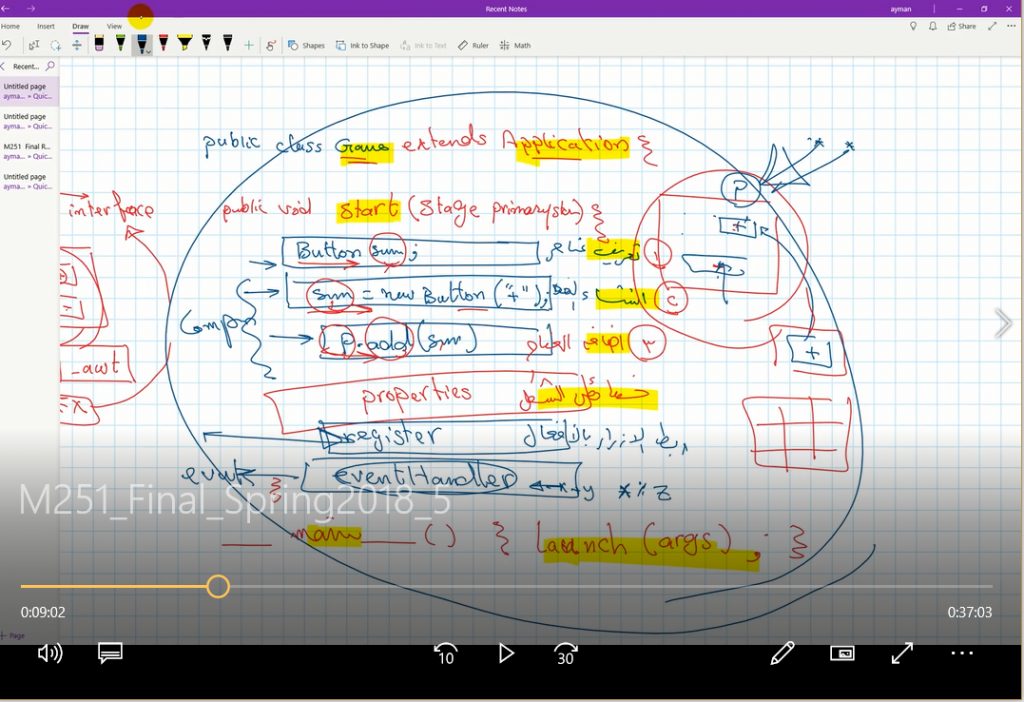 Recent Notes
ayman
Home Insert Draw View
Share
Shapes Ink to Shape Ink to Text Ruler Math
Recent...
Untitled page
ayman... > Quic...
Untitled page
ayma... > Quic...
M251 Final R...
ayma... > Quic...
Untitled page
ayma... > Quic...
public class Game extends Application {
P
interface
public void start (Stage primarystem) {
+
Button sum; تعريف ١
sum = new Button ("+");
Compon
P.add (sum) ٣
+
_awt
x
properties خصائص الشكل
register ربط الازرار بالافعال
event
eventHandler x+y * % Z
}
M251_Final_Spring2018_5
main () { launch (args) ; }
0:09:02 0:37:03
+ Page
10 30